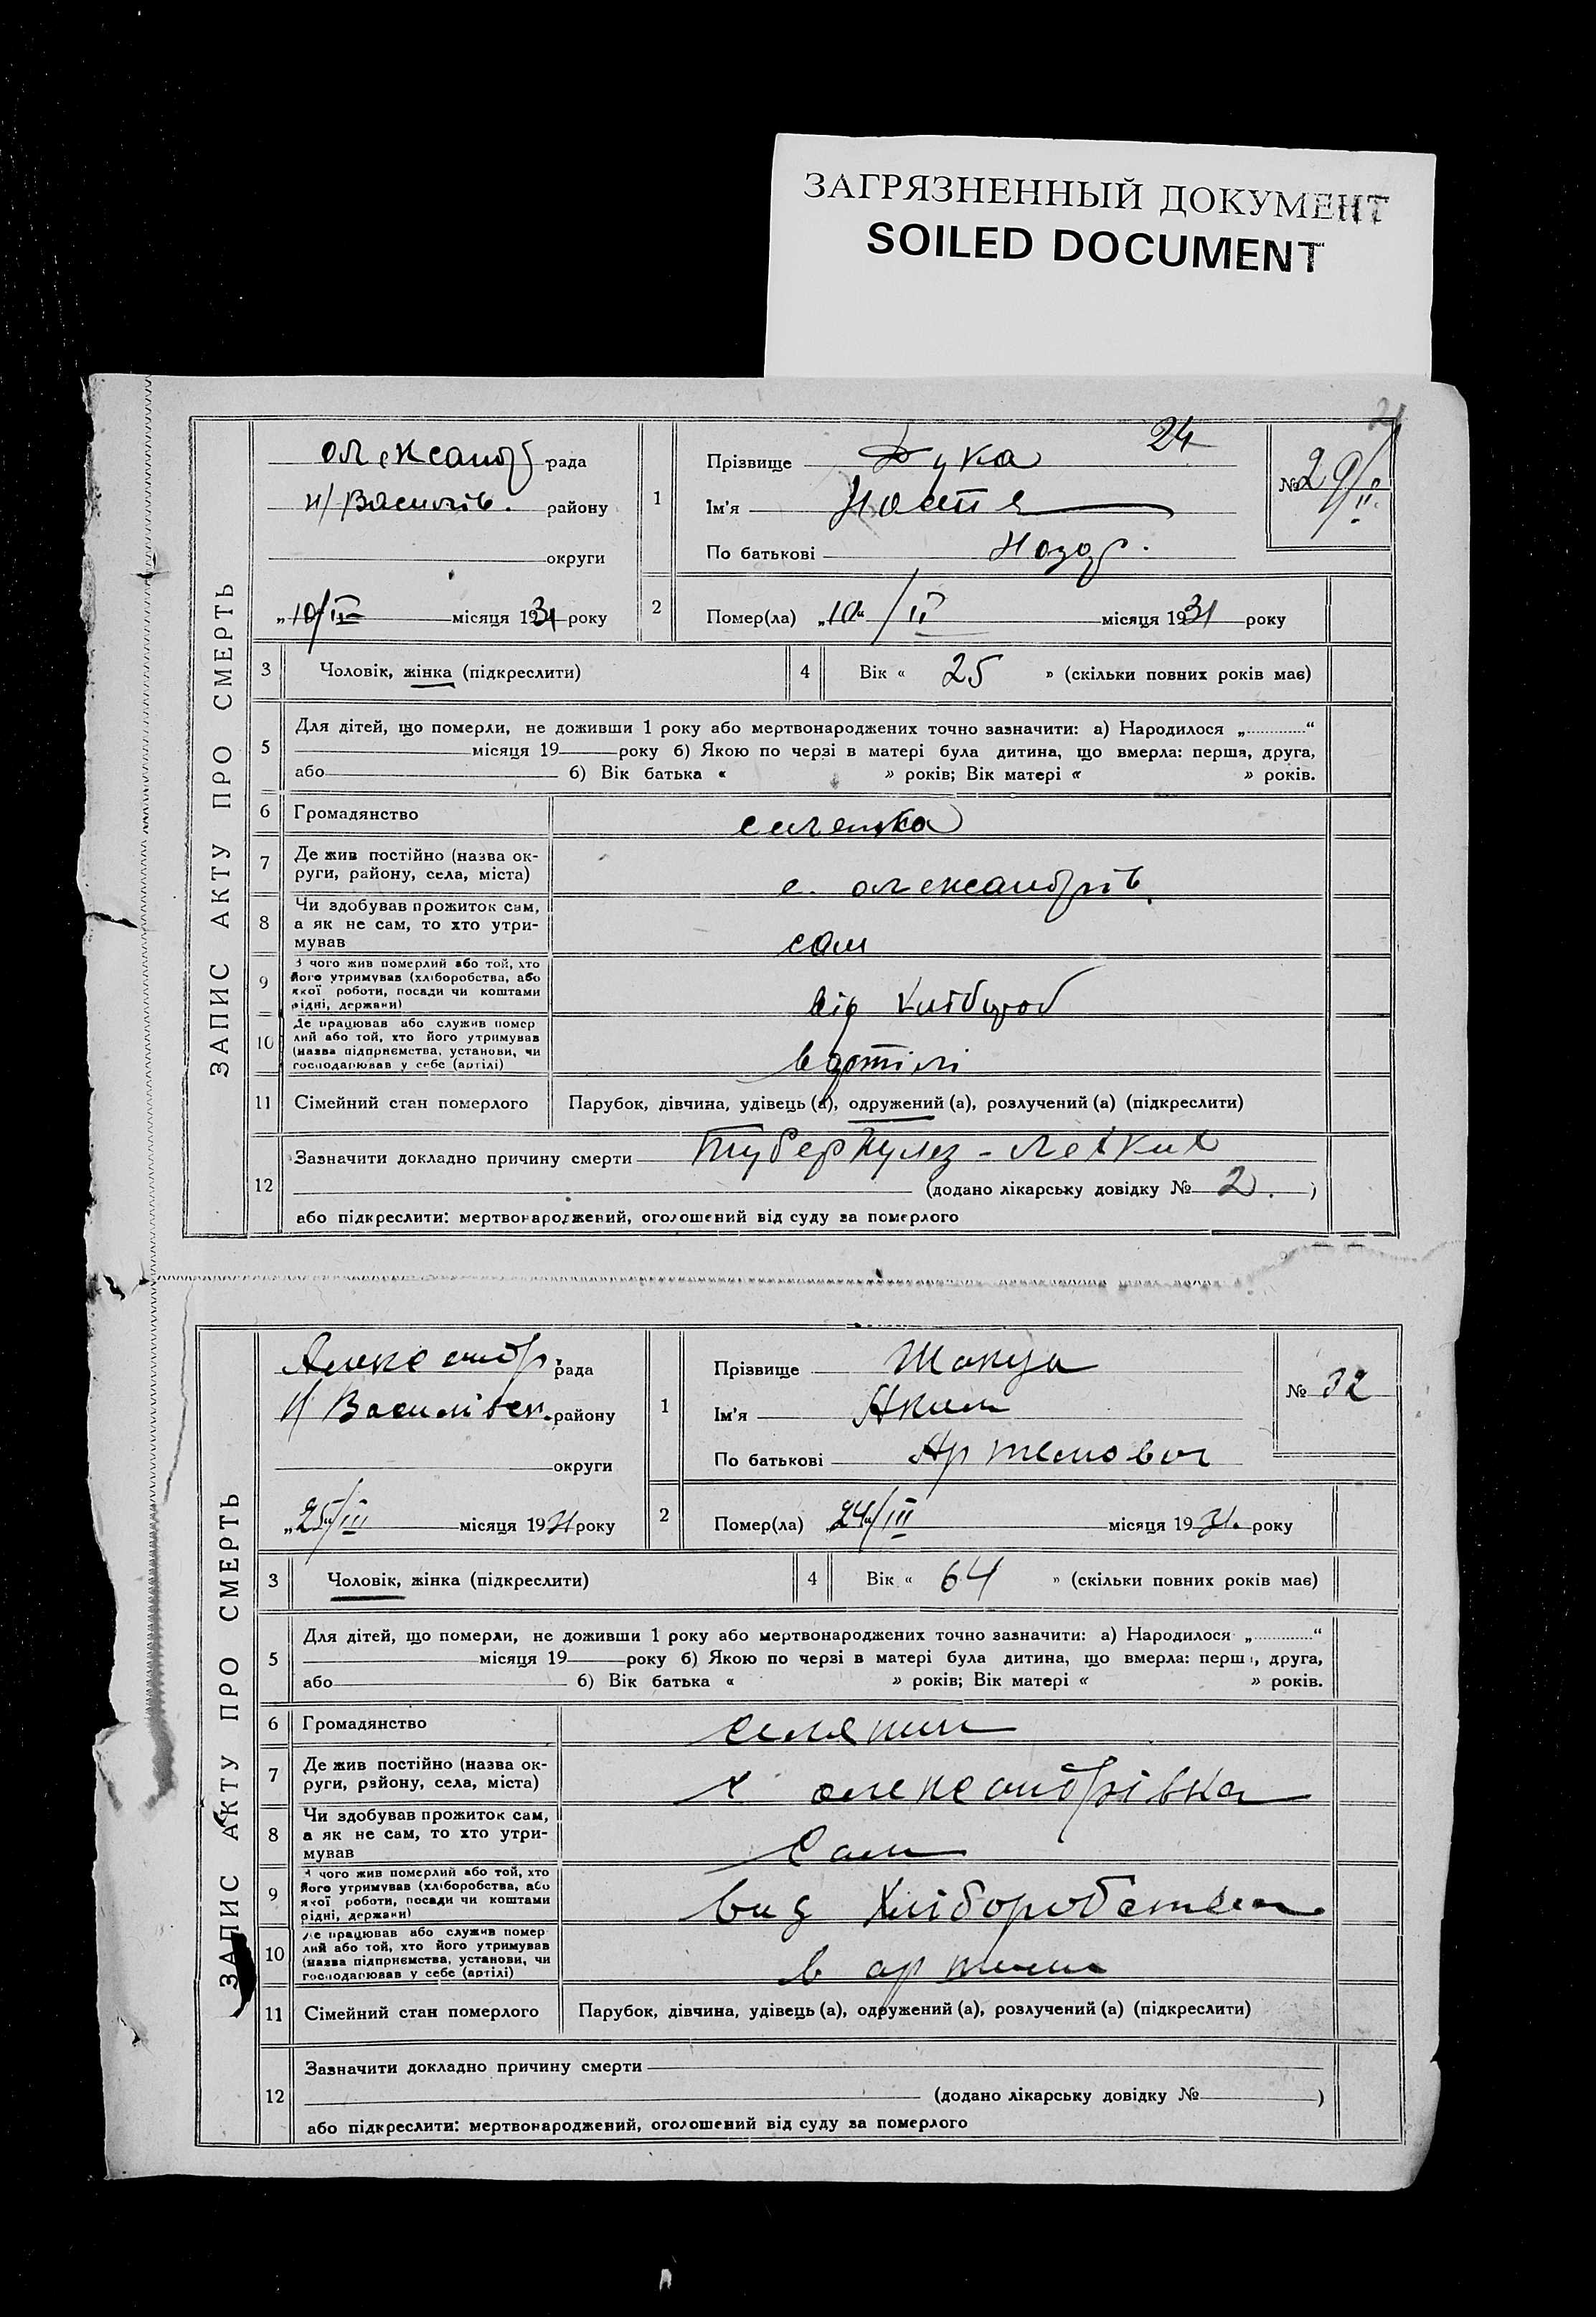 ЗАГРЯЗНЕННЫЙ ДОКУМЕНТ
SOILED DOCUMENT
24
ЗАПИС АКТУ ПРО СМЕРТЬ
Олександр рада
Н/Василів. району
округи
„10/ІІ місяця 1931 року
1
Прізвище Дука
Ім'я Настя
По батькові Назар.
№
2 Помер(ла) „10“/ІІ місяця 1931 року
3 Чоловік, жінка (підкреслити)
4 Вік « 25 » (скільки повних років має)
5 Для дітей, що померли, не доживши 1 року або мертвонароджених точно зазначити: а) Народилося „............“
місяця 19 року б) Якою по черзі в матері була дитина, що вмерла: перша, друга,
або б) Вік батька « » років; Вік матері « » років.
6 Громадянство селянка
7 Де жив постійно (назва ок-
руги, району, села, міста) с. Олександрів.
8 Чи здобував прожиток сам,
а як не сам, то хто утри-
мував сам
9 З чого жив померлий або той, хто
його утримував (хліборобства, або
якої роботи, посади чи коштами
рідні, держави) від хлібороб
10 Де працював або служив помер
лий або той, хто його утримував
(назва підприємства, установи, чи
господарював у себе (артілі) в артілі
11 Сімейний стан померлого Парубок, дівчина, удівець (а), одружений (а), розлучений (а) (підкреслити)
12 Зазначити докладно причину смерти Туберкулез - легких
(додано лікарську довідку № 2. )
або підкреслити: мертвонароджений, оголошений від суду за померлого
ЗАПИС АКТУ ПРО СМЕРТЬ
Александр. рада
Н/Василівск. району
округи
„25“/ІІІ місяця 1931 року
1
Прізвище
Ім'я Яким
По батькові Артемович
№ 32
2 Помер(ла) „24“/ІІІ місяця 1931. року
3 Чоловік, жінка (підкреслити)
4 Вік « 64 » (скільки повних років має)
5 Для дітей, що померли, не доживши 1 року або мертвонароджених точно зазначити: а) Народилося „............“
місяця 19 року б) Якою по черзі в матері була дитина, що вмерла: перша, друга,
або б) Вік батька « » років; Вік матері « » років.
6 Громадянство селянин
7 Де жив постійно (назва ок-
руги, району, села, міста) с Олександрівка
8 Чи здобував прожиток сам,
а як не сам, то хто утри-
мував Сам
9 З чого жив померлий або той, хто
його утримував (хліборобства, або
якої роботи, посади чи коштами
рідні, держави) вид Хліборобства
10 Де працював або служив помер
лий або той, хто його утримував
(назва підприємства, установи, чи
господарював у себе (артілі) в артили
11 Сімейний стан померлого Парубок, дівчина, удівець (а), одружений (а), розлучений (а) (підкреслити)
12 Зазначити докладно причину смерти
(додано лікарську довідку № )
або підкреслити: мертвонароджений, оголошений від суду за померлого